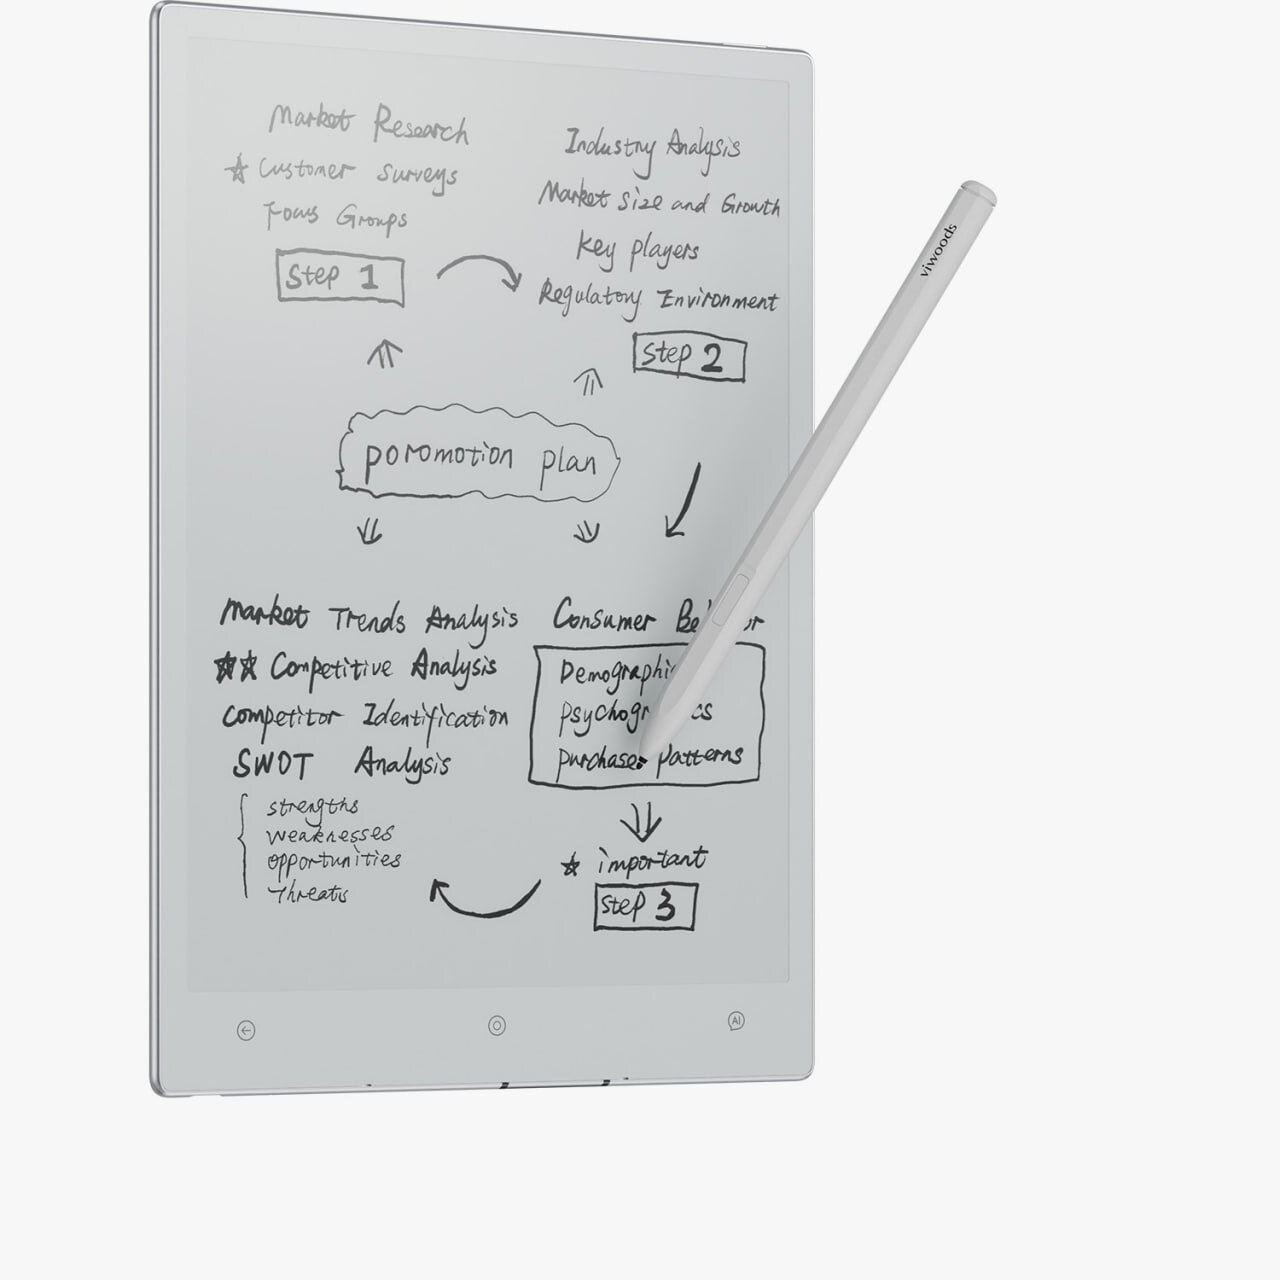 Market Research
Customer surveys
Focus Groups
Step 1
Industry Analysis
Market Size and Growth
key players
Regulatory Environment
Step 2
poromotion plan
Market Trends Analysis
Competitive Analysis
Competitor Identification
SWOT Analysis
strengths
weaknesses
opportunities
Threats
Consumer
Purchase Patterns
important
Step 3
viwoods
AI